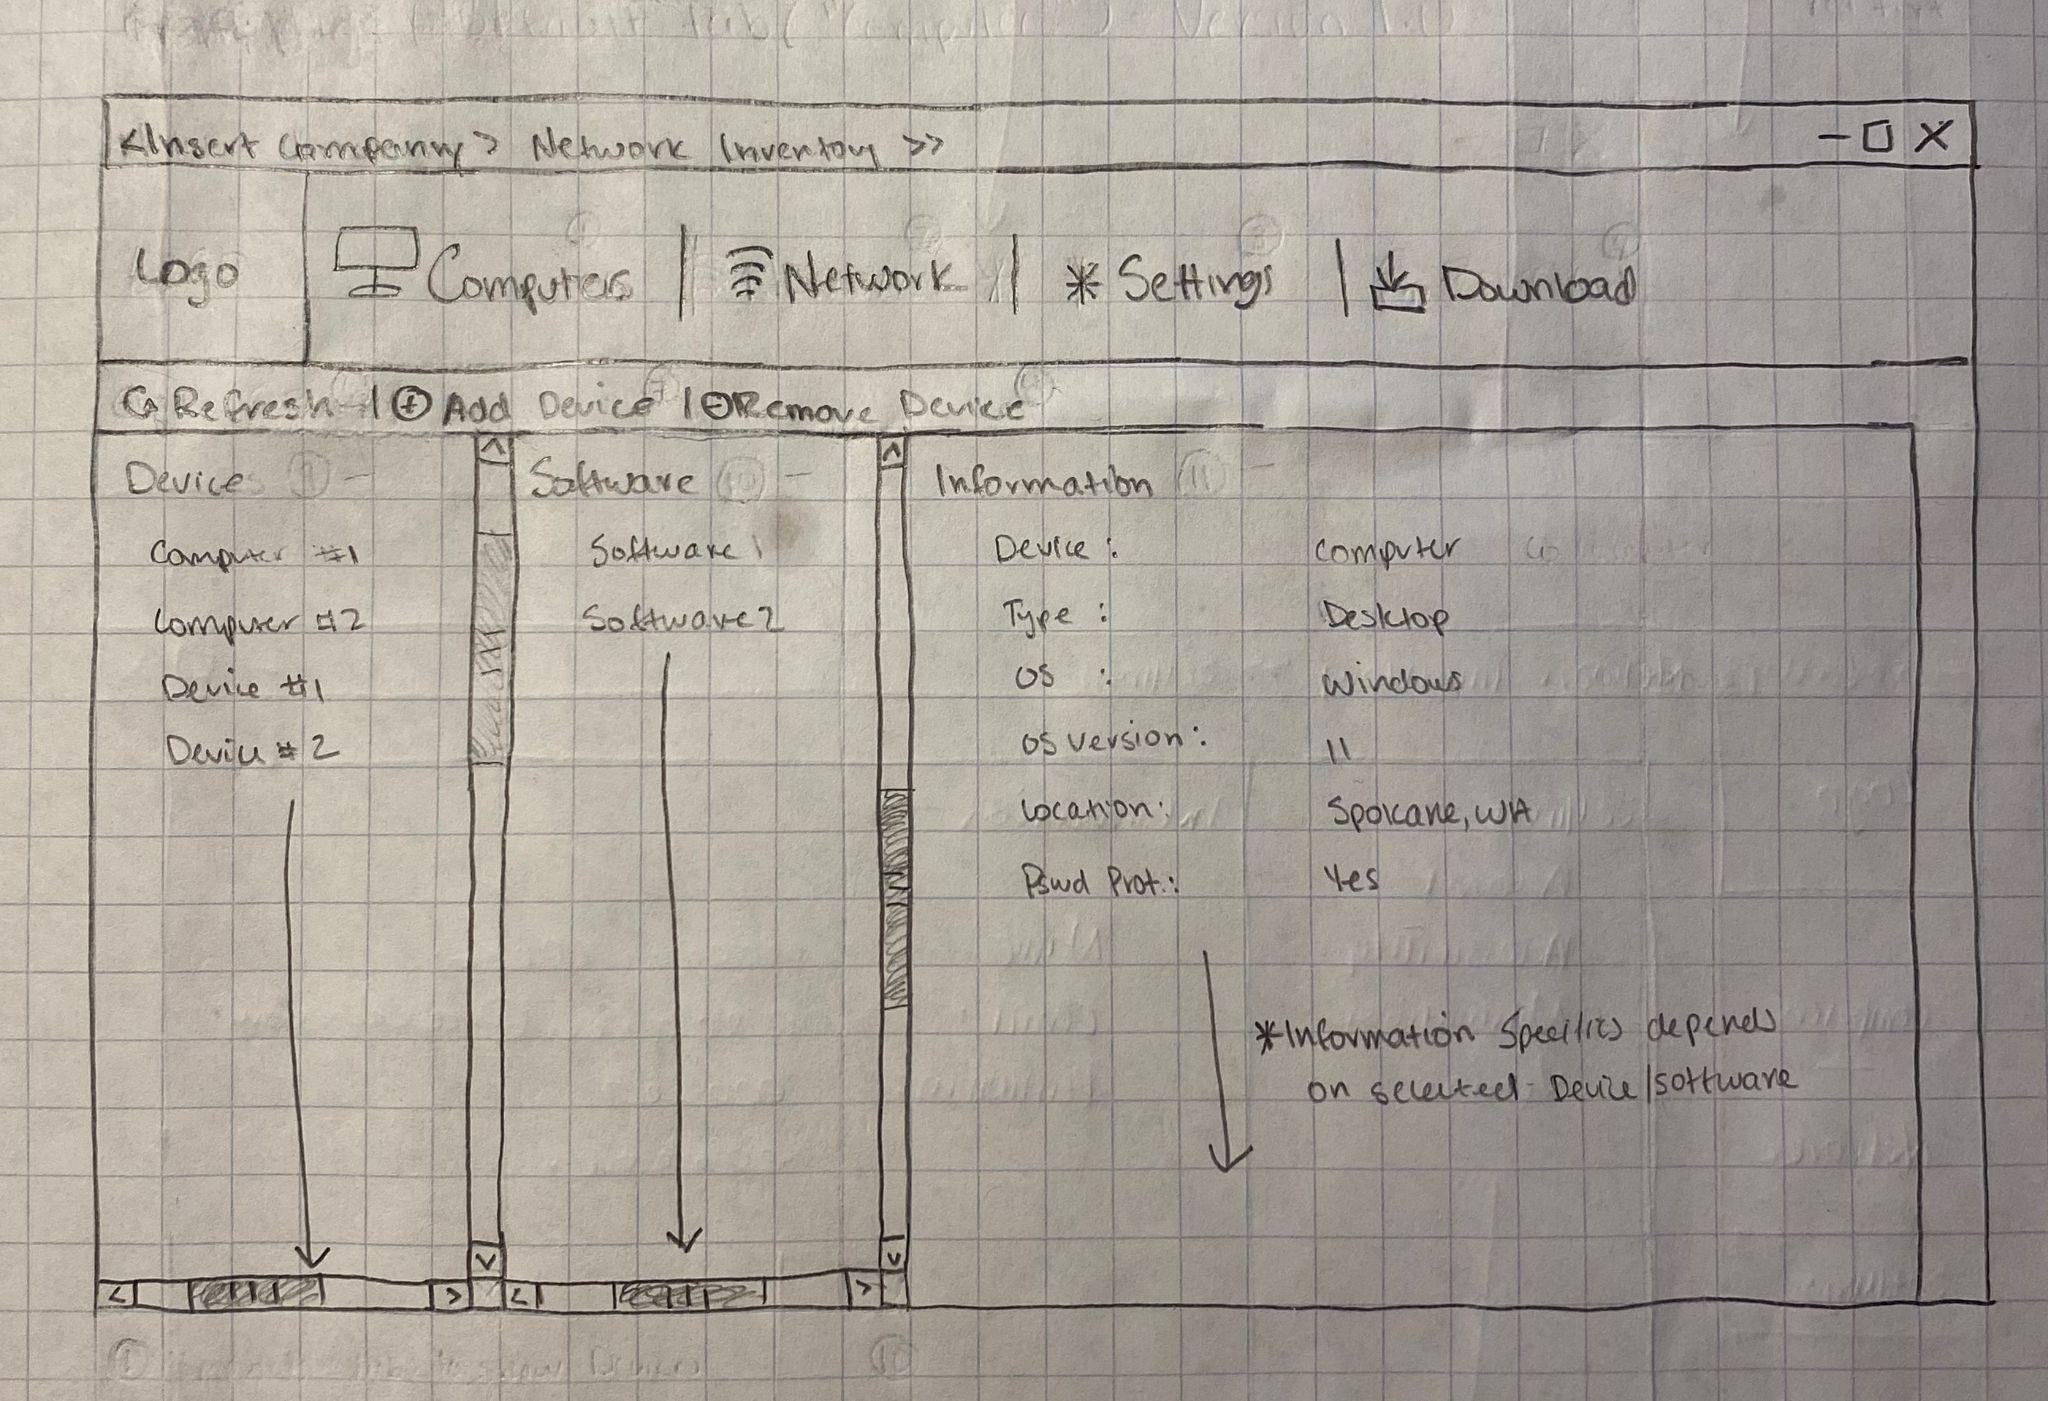 <Insert Company> Network Inventory >>
— □ X
Logo
Computers | Network | * Settings | Download
Refresh | + Add Device | - Remove Device
Devices
Computer #1
Computer #2
Device #1
Device #2
Software
Software 1
Software 2
Information
Device : Computer
Type : Desktop
OS : Windows
OS Version: 11
Location: Spokane, WA
Pswd Prot.: Yes
*Information Specifics depends
on selected Device/software